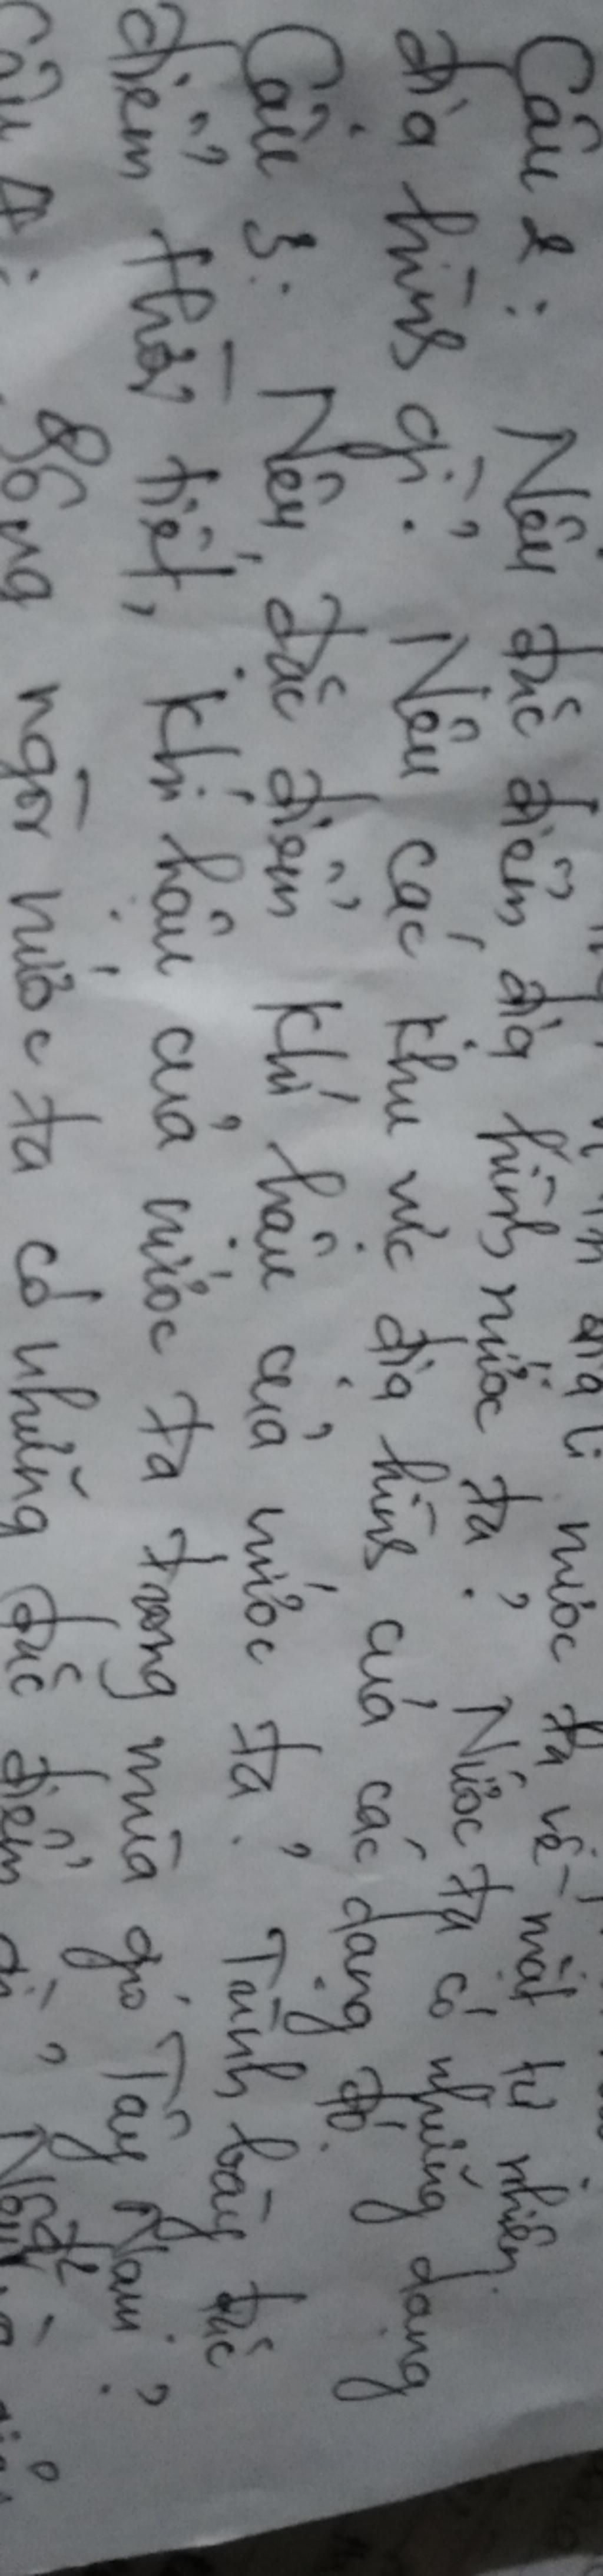 địa lí nước ta về mặt tự nhiên.
Câu 2: Nêu đặc điểm địa hình nước ta? Nước ta có những dạng
địa hình gì? Nêu các khu vực địa hình của các dạng đó.
Câu 3: Nêu đặc điểm khí hậu của nước ta? Trình bày đặc
điểm thời tiết, khí hậu của nước ta trong mùa gió Tây Nam?
Câu 4: Sông ngòi nước ta có những đặc điểm gì?